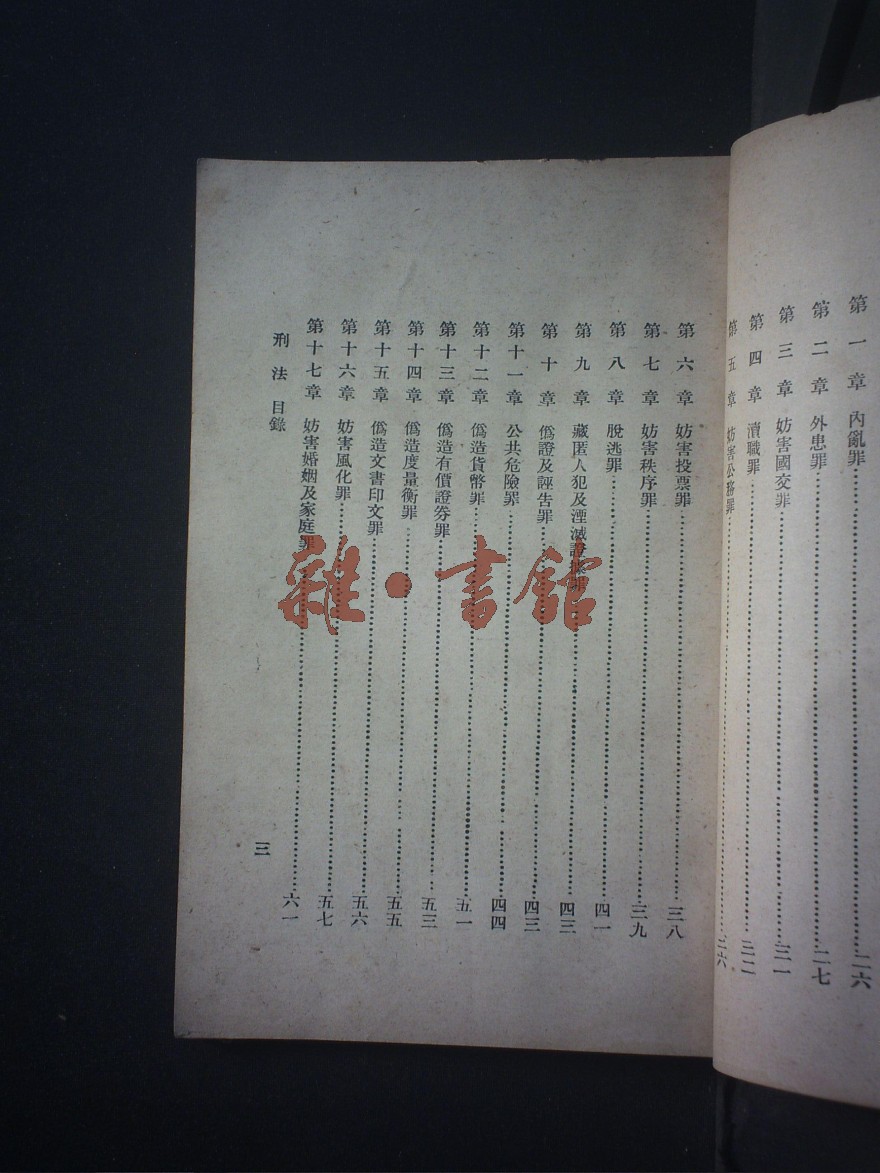 第一章 內亂罪……二六
第二章 外患罪……二七
第三章 妨害國交罪……三一
第四章 瀆職罪……三二
第五章 妨害公務罪……三六
第六章 妨害投票罪……三八
第七章 妨害秩序罪……三九
第八章 脫逃罪……四一
第九章 藏匿人犯及湮滅證據罪……四三
第十章 僞證及誣告罪……四三
第十一章 公共危險罪……四四
第十二章 僞造貨幣罪……五一
第十三章 僞造有價證券罪……五三
第十四章 僞造度量衡罪……五五
第十五章 僞造文書印文罪……五六
第十六章 妨害風化罪……五七
第十七章 妨害婚姻及家庭罪……六一
刑法 目錄
三
雜·書館